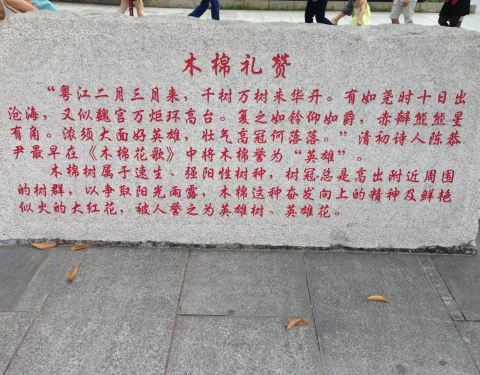 木棉礼赞
“粤江二月三月来，千树万树朱华开。有如尧时十日出
沧海，又似魏宫万炬环高台。复之如铃仰如爵，赤瓣熊熊星
有角。浓须大面好英雄，壮气高冠何落落。”清初诗人陈恭
尹最早在《木棉花歌》中将木棉誉为“英雄”。
木棉树属于速生、强阳性树种，树冠总是高出附近周围
的树群，以争取阳光雨露，木棉这种奋发向上的精神及鲜艳
似火的大红花，被人誉之为英雄树、英雄花。